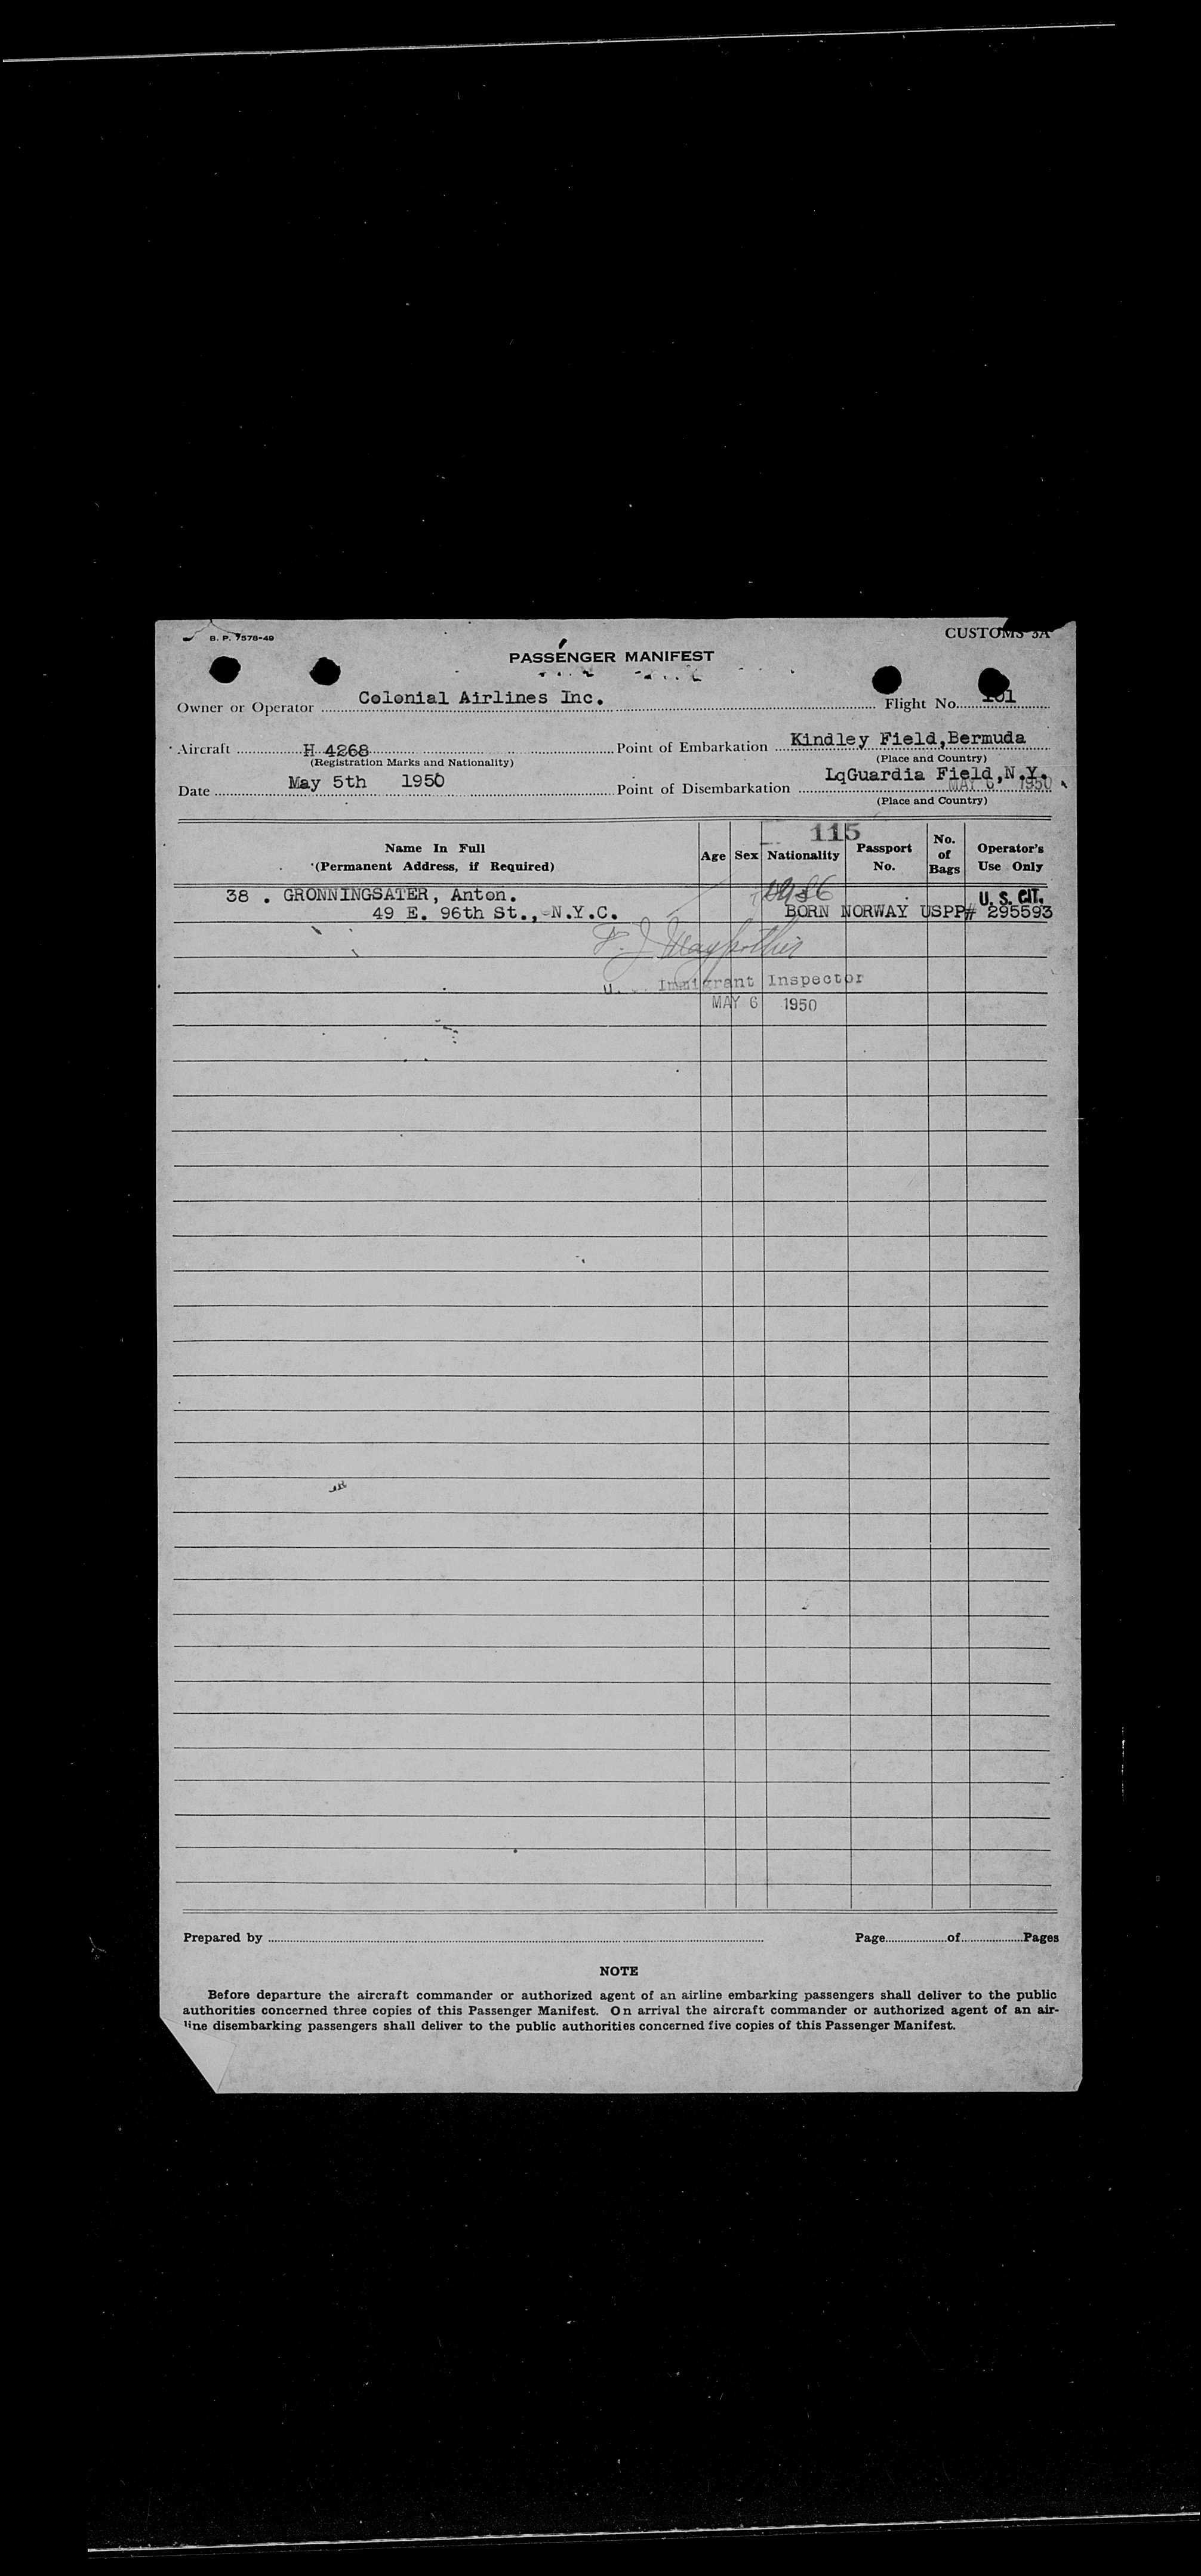 B. P. 7578-49
CUSTOMS 3A
PASSENGER MANIFEST
Owner or Operator Colonial Airlines Inc. Flight No. 101
Aircraft H 4268 Point of Embarkation Kindley Field,Bermuda
(Registration Marks and Nationality) (Place and Country)
Date May 5th 1950 Point of Disembarkation LqGuardia Field,N.Y.
MAY 6 1950
(Place and Country)
115
Name In Full (Permanent Address, if Required) Age Sex Nationality Passport No. No. of Bags Operator's Use Only
38 . GRONNINGSATER, Anton. U. S. CIT.
49 E. 96th St., N.Y.C. BORN NORWAY USPP# 295593
U. Immigrant Inspector
MAY 6 1950
Prepared by Page of Pages
NOTE
Before departure the aircraft commander or authorized agent of an airline embarking passengers shall deliver to the public
authorities concerned three copies of this Passenger Manifest. On arrival the aircraft commander or authorized agent of an air-
line disembarking passengers shall deliver to the public authorities concerned five copies of this Passenger Manifest.